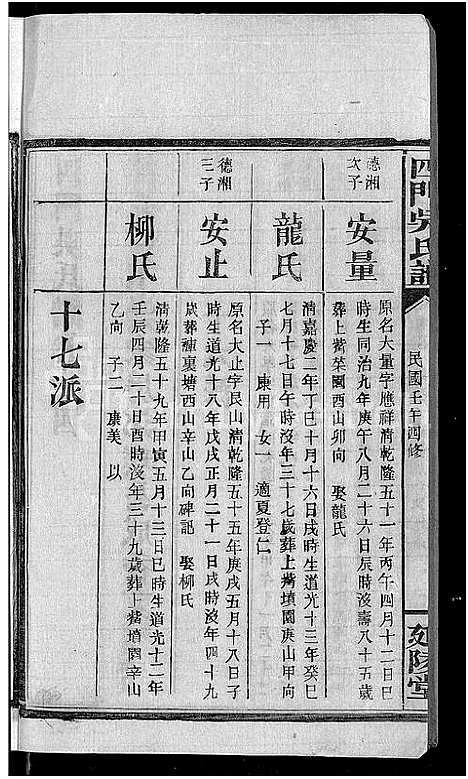 四門吳氏譜
民國壬午四修
延陵堂
德湘
次子
安量
原名大量字應祥清乾隆五十一年丙午四月十二日巳
時生同治九年庚午八月二十六日辰時沒壽八十五歲
葬上嘴菜園酉山卯向 娶龍氏
龍氏
清嘉慶二年丁巳十月十六日戌時生道光十三年癸巳
七月十七日午時沒年三十七歲葬上嘴墳園庚山甲向
子一 康用 女一 適夏登仁
德湘
三子
安止
原名大止字艮山清乾隆五十五年庚戌五月十八日子
時生道光十八年戊戌正月二十一日戌時沒年四十九
歲葬裏塘西山辛山乙向碑記 娶柳氏
柳氏
清乾隆五十九年甲寅五月十三日巳時生道光十二年
壬辰四月二十日酉時沒年三十九歲葬上嘴墳園辛山
乙向 子二 康美 以
十七派